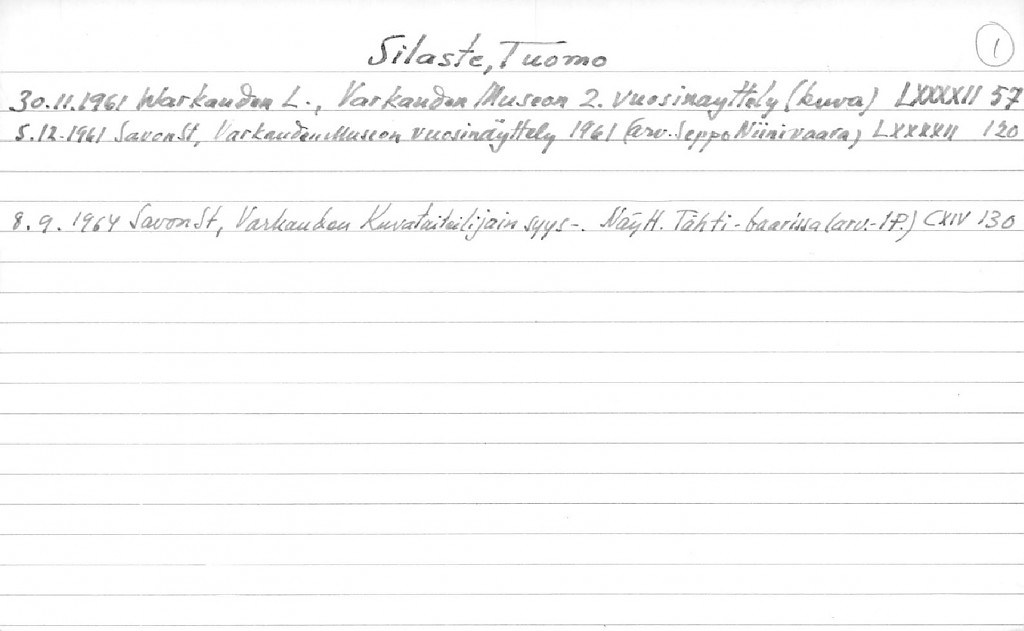 Silaste, Tuomo
1
30.11.1961 Warkauden L., Varkauden Museon 2. vuosinayttely (kuva) LXXXXII 57
5.12.1961 Savon St, Varkauden Museon vuosinäyttely 1961 (arv. Seppo Niinivaara) LXXXXII 120
8.9.1964 Savon St, Varkauden Kuvataiteilijain syys-. Näytt. Tähti-baarissa (arv.- ) CXIV 130